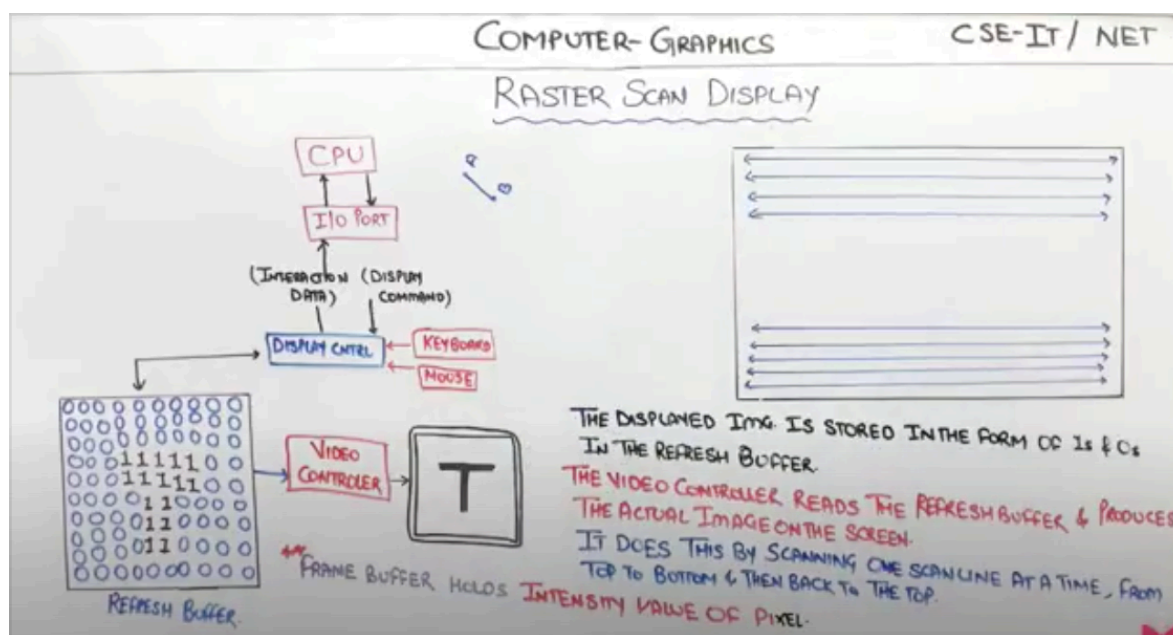 COMPUTER-GRAPHICS
CSE-IT / NET
RASTER SCAN DISPLAY
CPU
I/O PORT
(INTERACTION (DISPLAY
DATA) COMMAND)
DISPLAY CNTRL
KEYBOARD
MOUSE
A
B
0000000000
0000000000
0000000000
0001111100
0001111100
0000110000
0000110000
0000110000
0000000000
REFRESH BUFFER.
VIDEO
CONTROLER
T
THE DISPLAYED IMG. IS STORED IN THE FORM OF 1s & 0s
IN THE REFRESH BUFFER.
THE VIDEO CONTROLLER READS THE REFRESH BUFFER & PRODUCES
THE ACTUAL IMAGE ON THE SCREEN.
IT DOES THIS BY SCANNING ONE SCANLINE AT A TIME, FROM
TOP TO BOTTOM & THEN BACK TO THE TOP.
FRAME BUFFER HOLDS INTENSITY VALUE OF PIXEL.